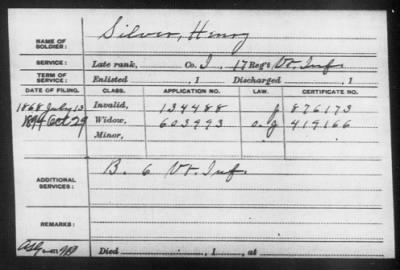 NAME OF SOLDIER: Silver, Henry
SERVICE: Late rank, Co. I, 17 Reg't Vt. Inf.
TERM OF SERVICE: Enlisted , 1 Discharged , 1
DATE OF FILING. CLASS. APPLICATION NO. CERTIFICATE NO.
1868 July 13 Invalid, 134488 876173
1894 Oct 29 Widow, 603993 419166
Minor,
ADDITIONAL SERVICES: B. 6 Vt. Inf.
REMARKS:
Died , 1 , at